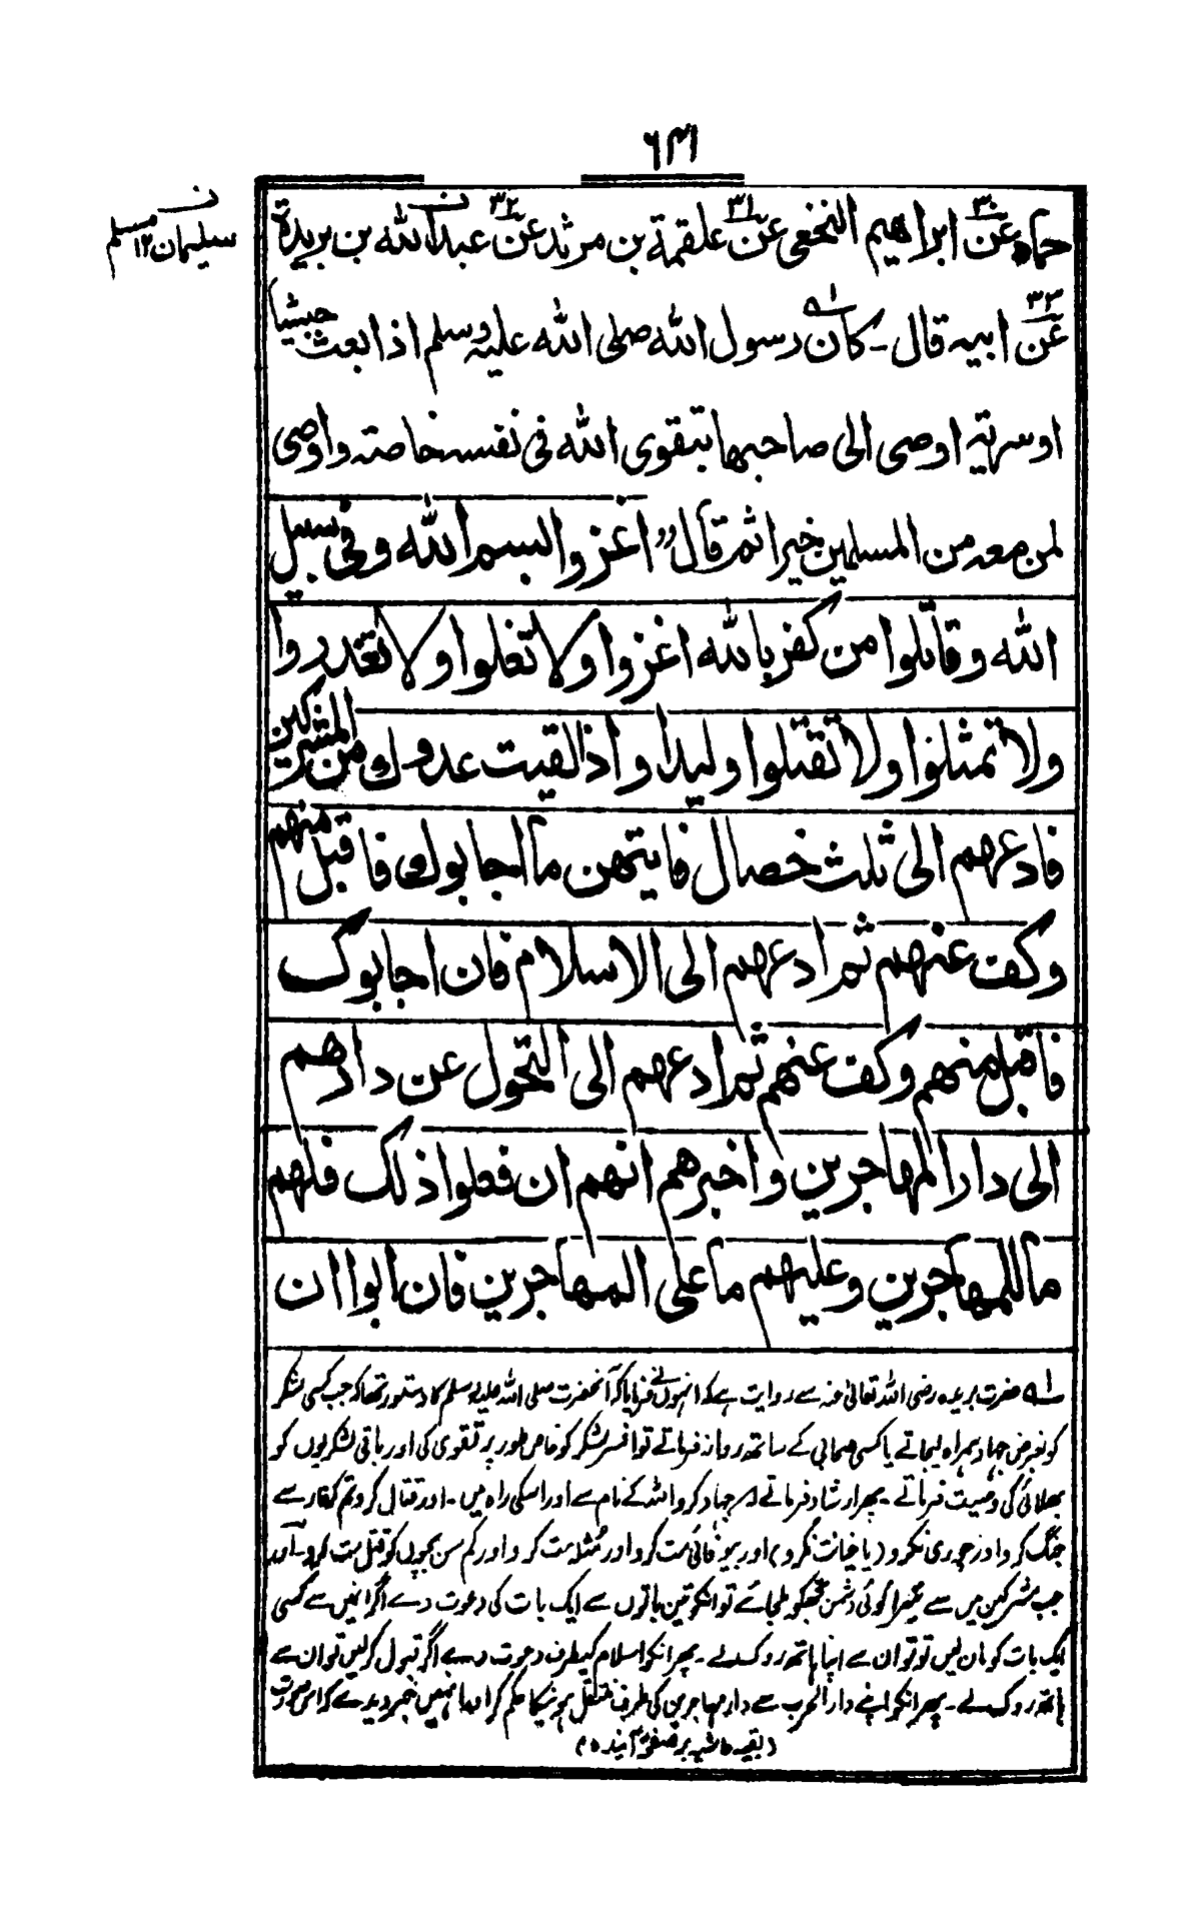 ۶۴۱
حماد عن ابراهيم النخعى عن علقمة بن مرثد عن عبدالله بن بريدة
۳۰ ۳۱ ۳۲ ن
ن
سليمان ۱۲ مسلم
۳۳
عن ابيه قال ـ كان رسول الله صلى الله عليه وسلم اذا بعث جيشا
او سرية اوصى الى صاحبها بتقوى الله فى نفسه خاصة واوصى
لمن معه من المسلمين خيرا ثم قال " اغزوا بسم الله وفى سبيل
الله وقاتلوا من كفر بالله اغزوا ولا تغلوا ولا تغدروا
ولا تمثلوا ولا تقتلوا وليدا واذا لقيت عدوك من المشركين
فادعهم الى ثلث خصال فايتهن ما اجابوك فاقبل منهم
وكف عنهم ثم ادعهم الى الاسلام فان اجابوك
فاقبل منهم وكف عنهم ثم ادعهم الى التحول عن دارهم
الى دار المهاجرين واخبرهم انهم ان فعلوا ذلك فلهم
ما للمهاجرين وعليهم ما على المهاجرين فان ابوا ان
لہ حضرت بریدہ رضی اللہ تعالیٰ عنہ سے روایت ہے کہ انہوں نے فرمایا کہ آنحضرت صلی اللہ علیہ وسلم کا دستور تھا کہ جب کسی لشکر
کو بغرض جہاد ہمراہ لیجاتے یا کسی صحابی کے ساتھ روانہ فرماتے تو افسر لشکر کو خاص طور پر تقوی کی اور باقی لشکریوں کو
بھلائی کی وصیت فرماتے ۔ پھر ارشاد فرماتے " جہاد کرو اللہ کے نام سے اور اسکی راہ میں ۔ اور قتال کرو تم کفار سے
جنگ کرو اور چوری نکرو (یا خیانت نکرو) اور بیوفائی مت کرو اور مُثلہ مت کرو اور کم سن بچوں کو قتل مت کرو ۔ اور
جب مشرکین میں سے تیرا کوئی دشمن تجھکو ملجائے تو انکو تین باتوں سے ایک بات کی دعوت دے اگر انمیں سے کسی
ایک بات کو مان لیں تو تو ان سے اپنا ہاتھ روک لے ۔ پھر انکو اسلام کیطرف دعوت دے اگر قبول کرلیں تو ان سے
ہاتھ روک لے ۔ پھر انکو اپنے دار الحرب سے دار مہاجرین کی طرف منتقل ہونیکا حکم کر اور انہیں خبر دیدے کہ اس صورت
(بقیہ حاشیہ بر صفحہ آیندہ)